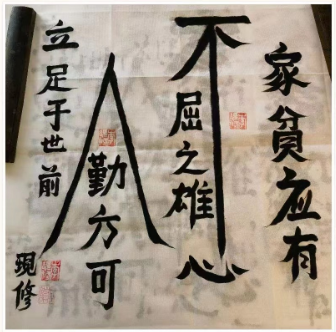 家貧应有
不屈之雄心
人勤方可
立足于世前
現修